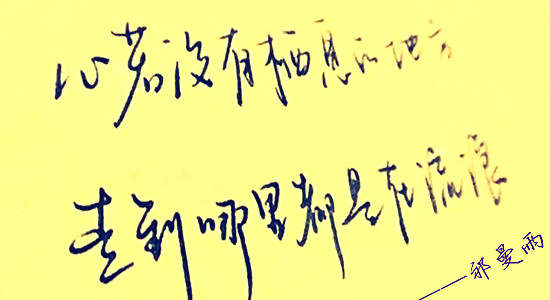 心若没有栖息的地方
走到哪里都是在流浪
——郭曼雨